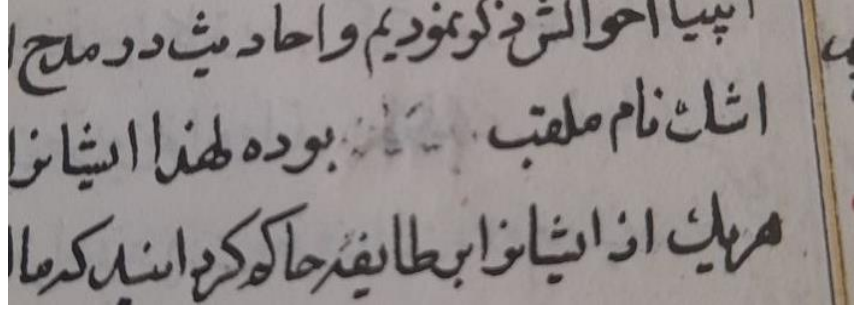 احوالش ذکر نمودیم و احادیث در مدح
اشان نام ملقب بوده لهذا ایشانرا
هریک از ایشانرا بر طایفهٔ حاکم کردانید که ما